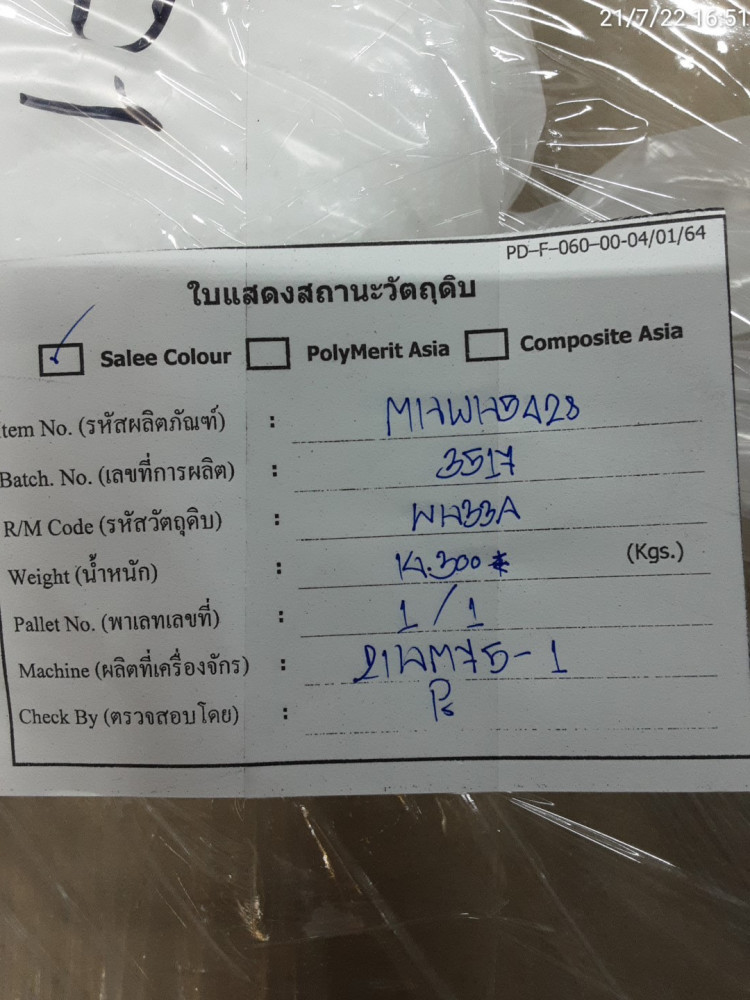 21/7/22 16:51
PD-F-060-00-04/01/64
ใบแสดงสถานะวัตถุดิบ
Salee Colour PolyMerit Asia Composite Asia
tem No. (รหัสผลิตภัณฑ์) :
Batch. No. (เลขที่การผลิต) : 3517
R/M Code (รหัสวัตถุดิบ) : WH33A
Weight (น้ำหนัก) : 14.300 (Kgs.)
Pallet No. (พาเลทเลขที่) : 1 / 1
Machine (ผลิตที่เครื่องจักร) :
Check By (ตรวจสอบโดย) :